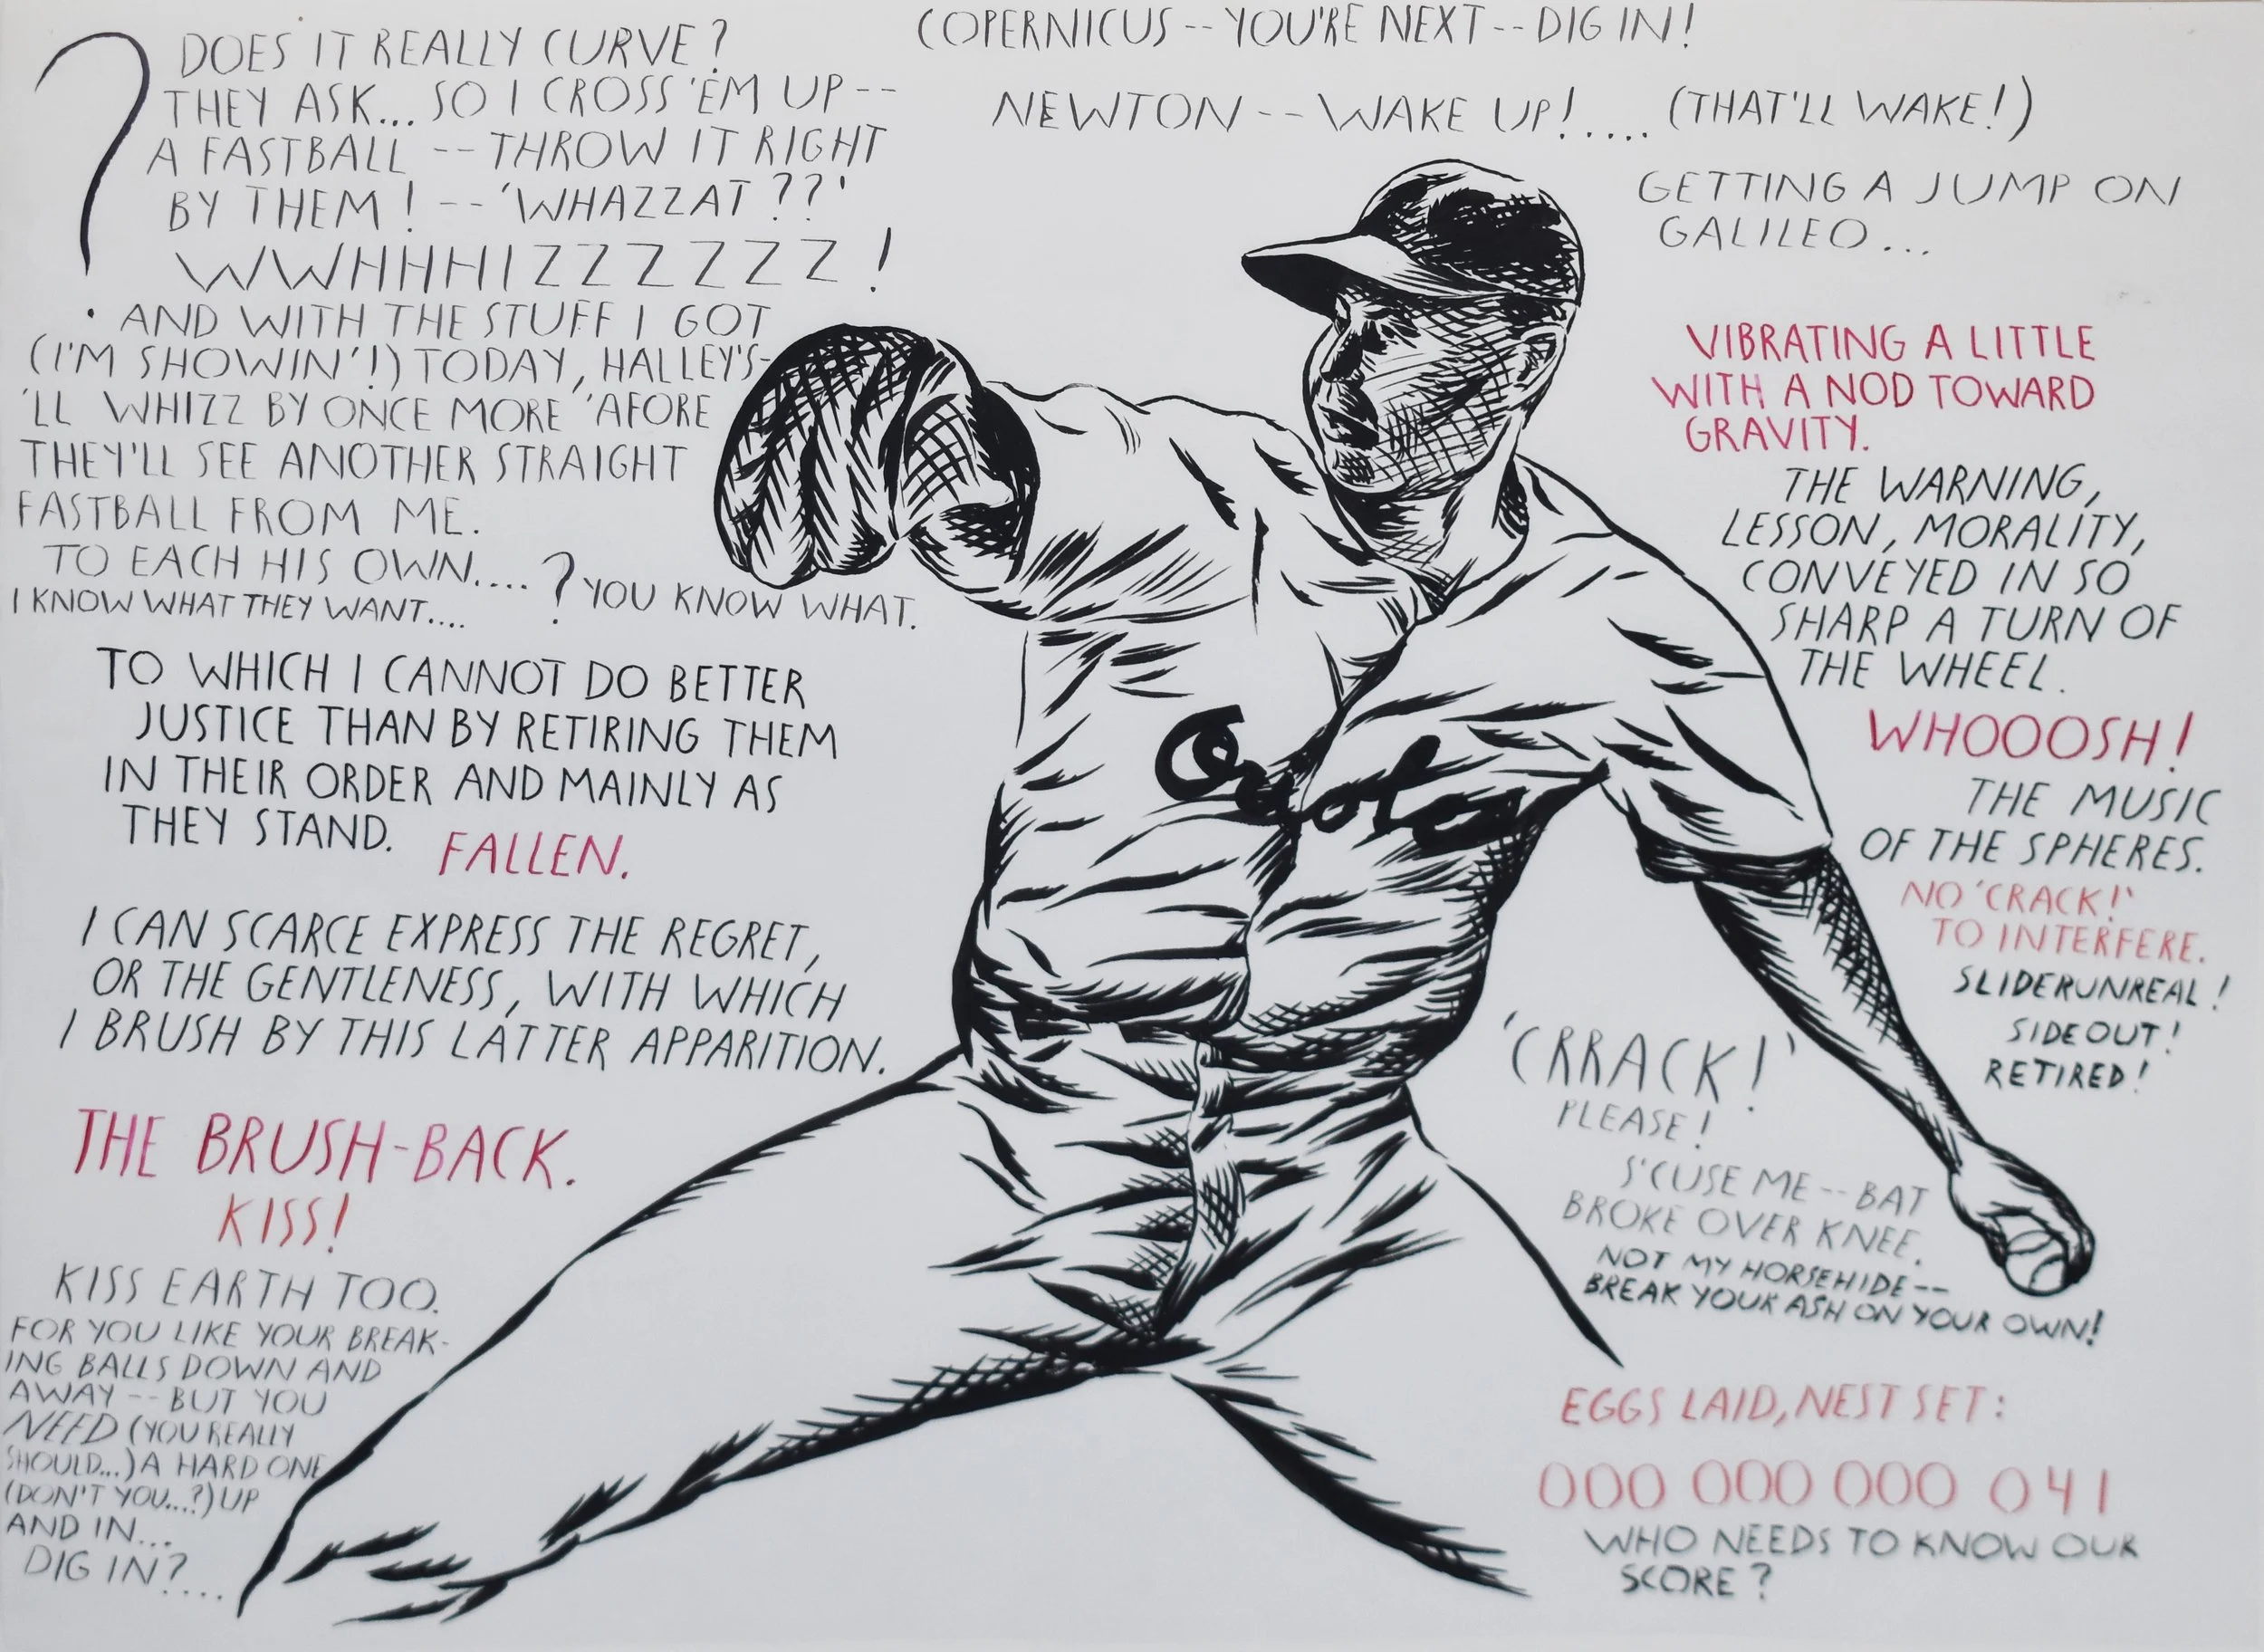 DOES IT REALLY CURVE?
THEY ASK... SO I CROSS 'EM UP--
A FASTBALL -- THROW IT RIGHT
BY THEM! -- 'WHAZZAT??'
WWHHHIZZZZZZ!
AND WITH THE STUFF I GOT
(I'M SHOWIN'!) TODAY, HALLEY'S-
'LL WHIZZ BY ONCE MORE 'AFORE
THEY'LL SEE ANOTHER STRAIGHT
FASTBALL FROM ME.
TO EACH HIS OWN.... ?
I KNOW WHAT THEY WANT.... YOU KNOW WHAT.
TO WHICH I CANNOT DO BETTER
JUSTICE THAN BY RETIRING THEM
IN THEIR ORDER AND MAINLY AS
THEY STAND. FALLEN.
I CAN SCARCE EXPRESS THE REGRET,
OR THE GENTLENESS, WITH WHICH
I BRUSH BY THIS LATTER APPARITION.
THE BRUSH-BACK.
KISS!
KISS EARTH TOO.
FOR YOU LIKE YOUR BREAK-
ING BALLS DOWN AND
AWAY -- BUT YOU
NEED (YOU REALLY
SHOULD...) A HARD ONE
(DON'T YOU...?) UP
AND IN...
DIG IN?....
COPERNICUS -- YOU'RE NEXT -- DIG IN!
NEWTON -- WAKE UP!.... (THAT'LL WAKE!)
GETTING A JUMP ON
GALILEO...
VIBRATING A LITTLE
WITH A NOD TOWARD
GRAVITY.
THE WARNING,
LESSON, MORALITY,
CONVEYED IN SO
SHARP A TURN OF
THE WHEEL.
WHOOOSH!
THE MUSIC
OF THE SPHERES.
NO 'CRACK!'
TO INTERFERE.
SLIDERUNREAL!
SIDE OUT!
RETIRED!
Orioles
'CRRACK!'
PLEASE!
S'CUSE ME -- BAT
BROKE OVER KNEE.
NOT MY HORSEHIDE --
BREAK YOUR ASH ON YOUR OWN!
EGGS LAID, NEST SET:
000 000 000 041
WHO NEEDS TO KNOW OUR
SCORE?